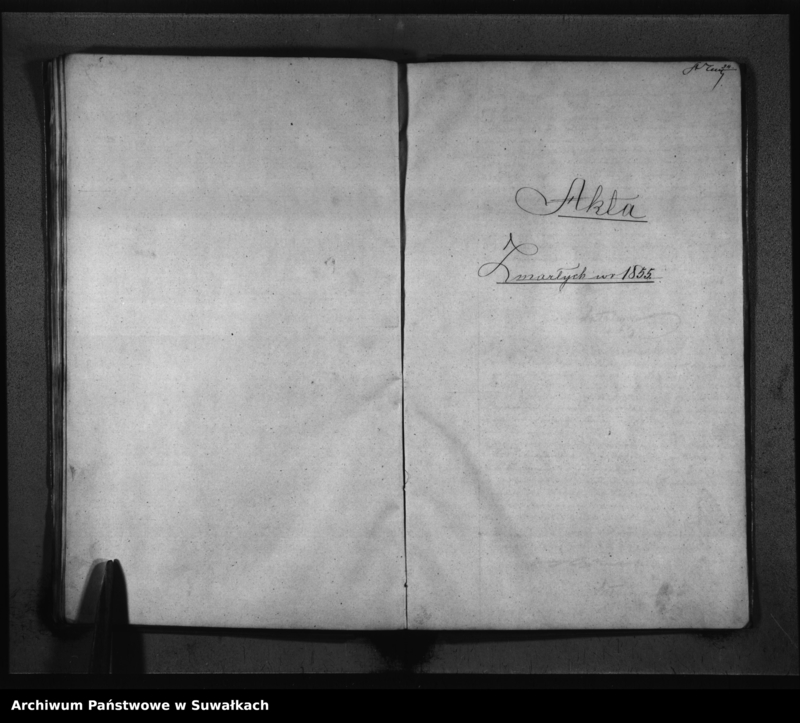 Akta
Zmarłych w r 1855.
Archiwum Państwowe w Suwałkach